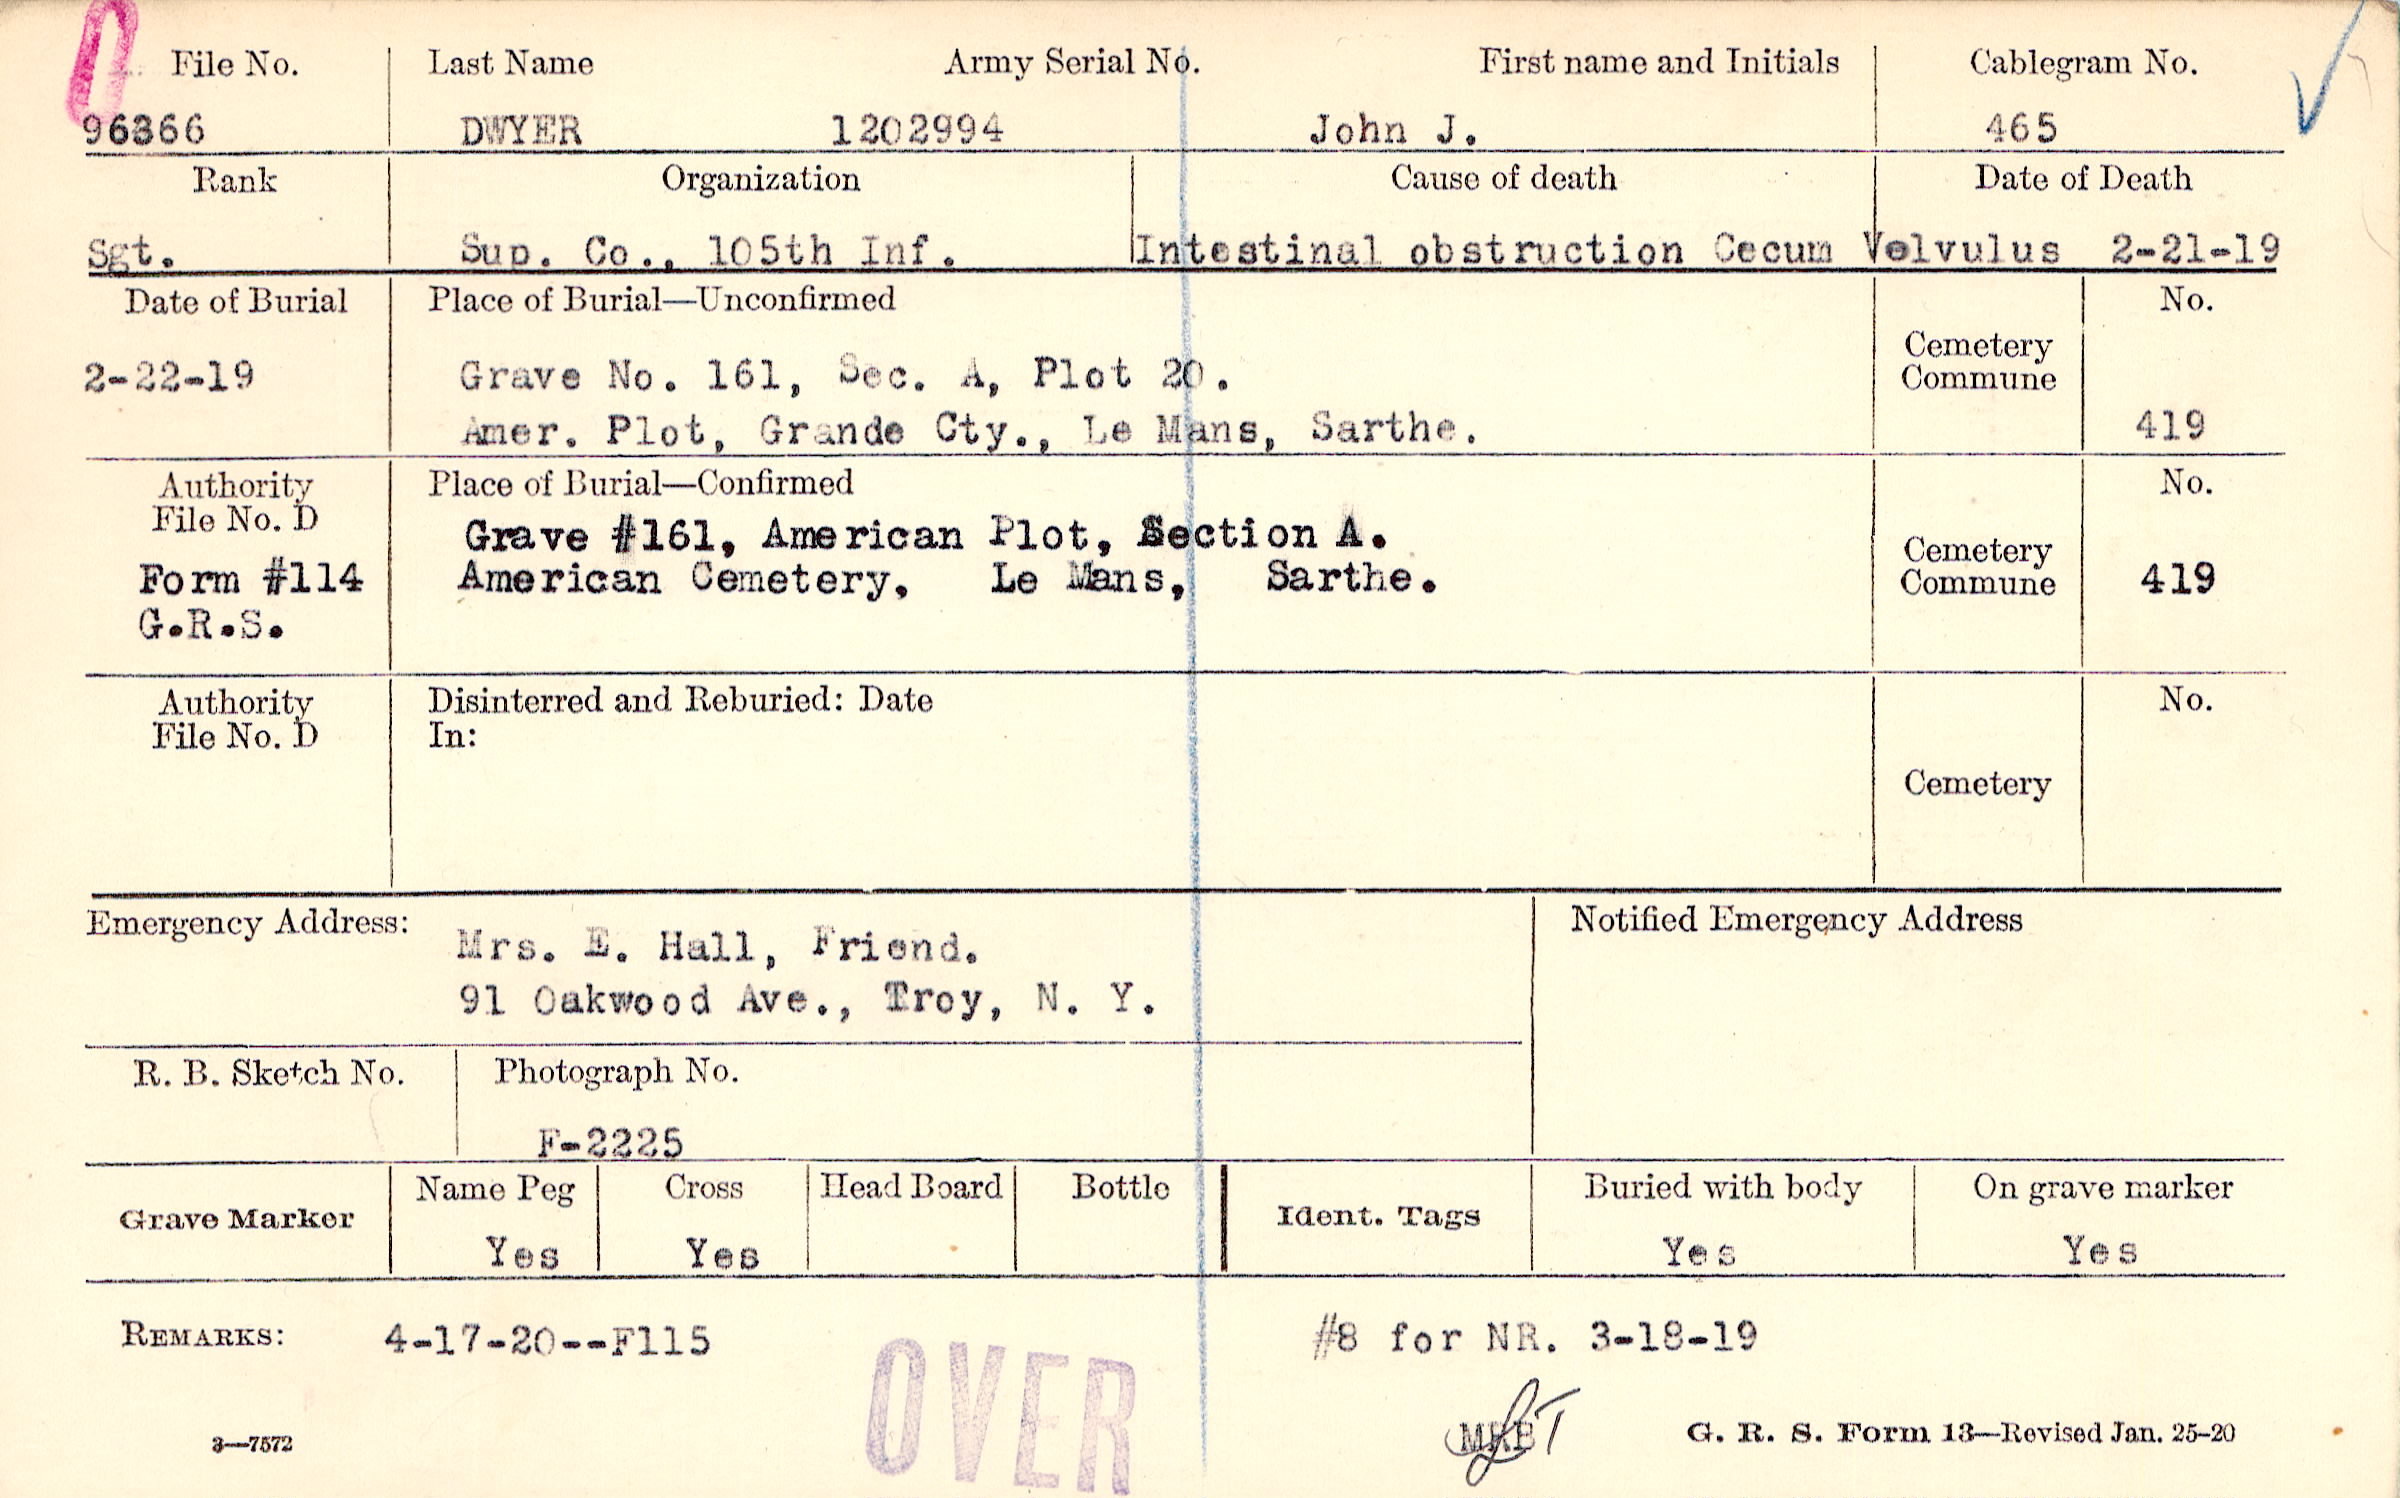 File No. Last Name Army Serial No. First name and Initials Cablegram No.
96366 DWYER 1202994 John J. 465
Rank Organization Cause of death Date of Death
Sgt. Sup. Co., 105th Inf. Intestinal obstruction Cecum Velvulus 2-21-19
Date of Burial Place of Burial—Unconfirmed No.
Cemetery
Commune
2-22-19 Grave No. 161, Sec. A, Plot 20.
Amer. Plot, Grande Cty., Le Mans, Sarthe. 419
Authority Place of Burial—Confirmed No.
File No. D
Grave #161, American Plot, Section A.
Cemetery
Commune
Form #114 American Cemetery, Le Mans, Sarthe. 419
G.R.S.
Authority Disinterred and Reburied: Date No.
File No. D In:
Cemetery
Emergency Address: Notified Emergency Address
Mrs. E. Hall, Friend.
91 Oakwood Ave., Troy, N. Y.
R. B. Sketch No. Photograph No.
F-2225
Grave Marker Name Peg Cross Head Board Bottle Ident. Tags Buried with body On grave marker
Yes Yes Yes Yes
REMARKS: 4-17-20--F115 #8 for NR. 3-18-19
OVER
3—7572 G. R. S. Form 13—Revised Jan. 25-20